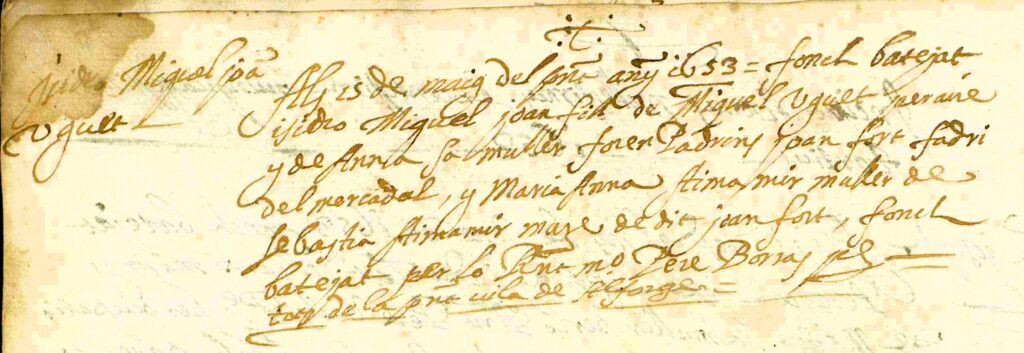 isidro Miquel joã
Vguet
Als 15 de maig del pñt any 1653 = fonch batejat
isidro Miquel joan fill de Miquel Vguet peraire
y de Anna sa muller foren Padrins joan fort fadri
del mercadal, y Maria Anna Aimamir muller de
sebastia Aimamir mare de dit joan fort, fonch
batejat per lo Rñt mº Pere Borras
tots de la pñt vila de Alforge =